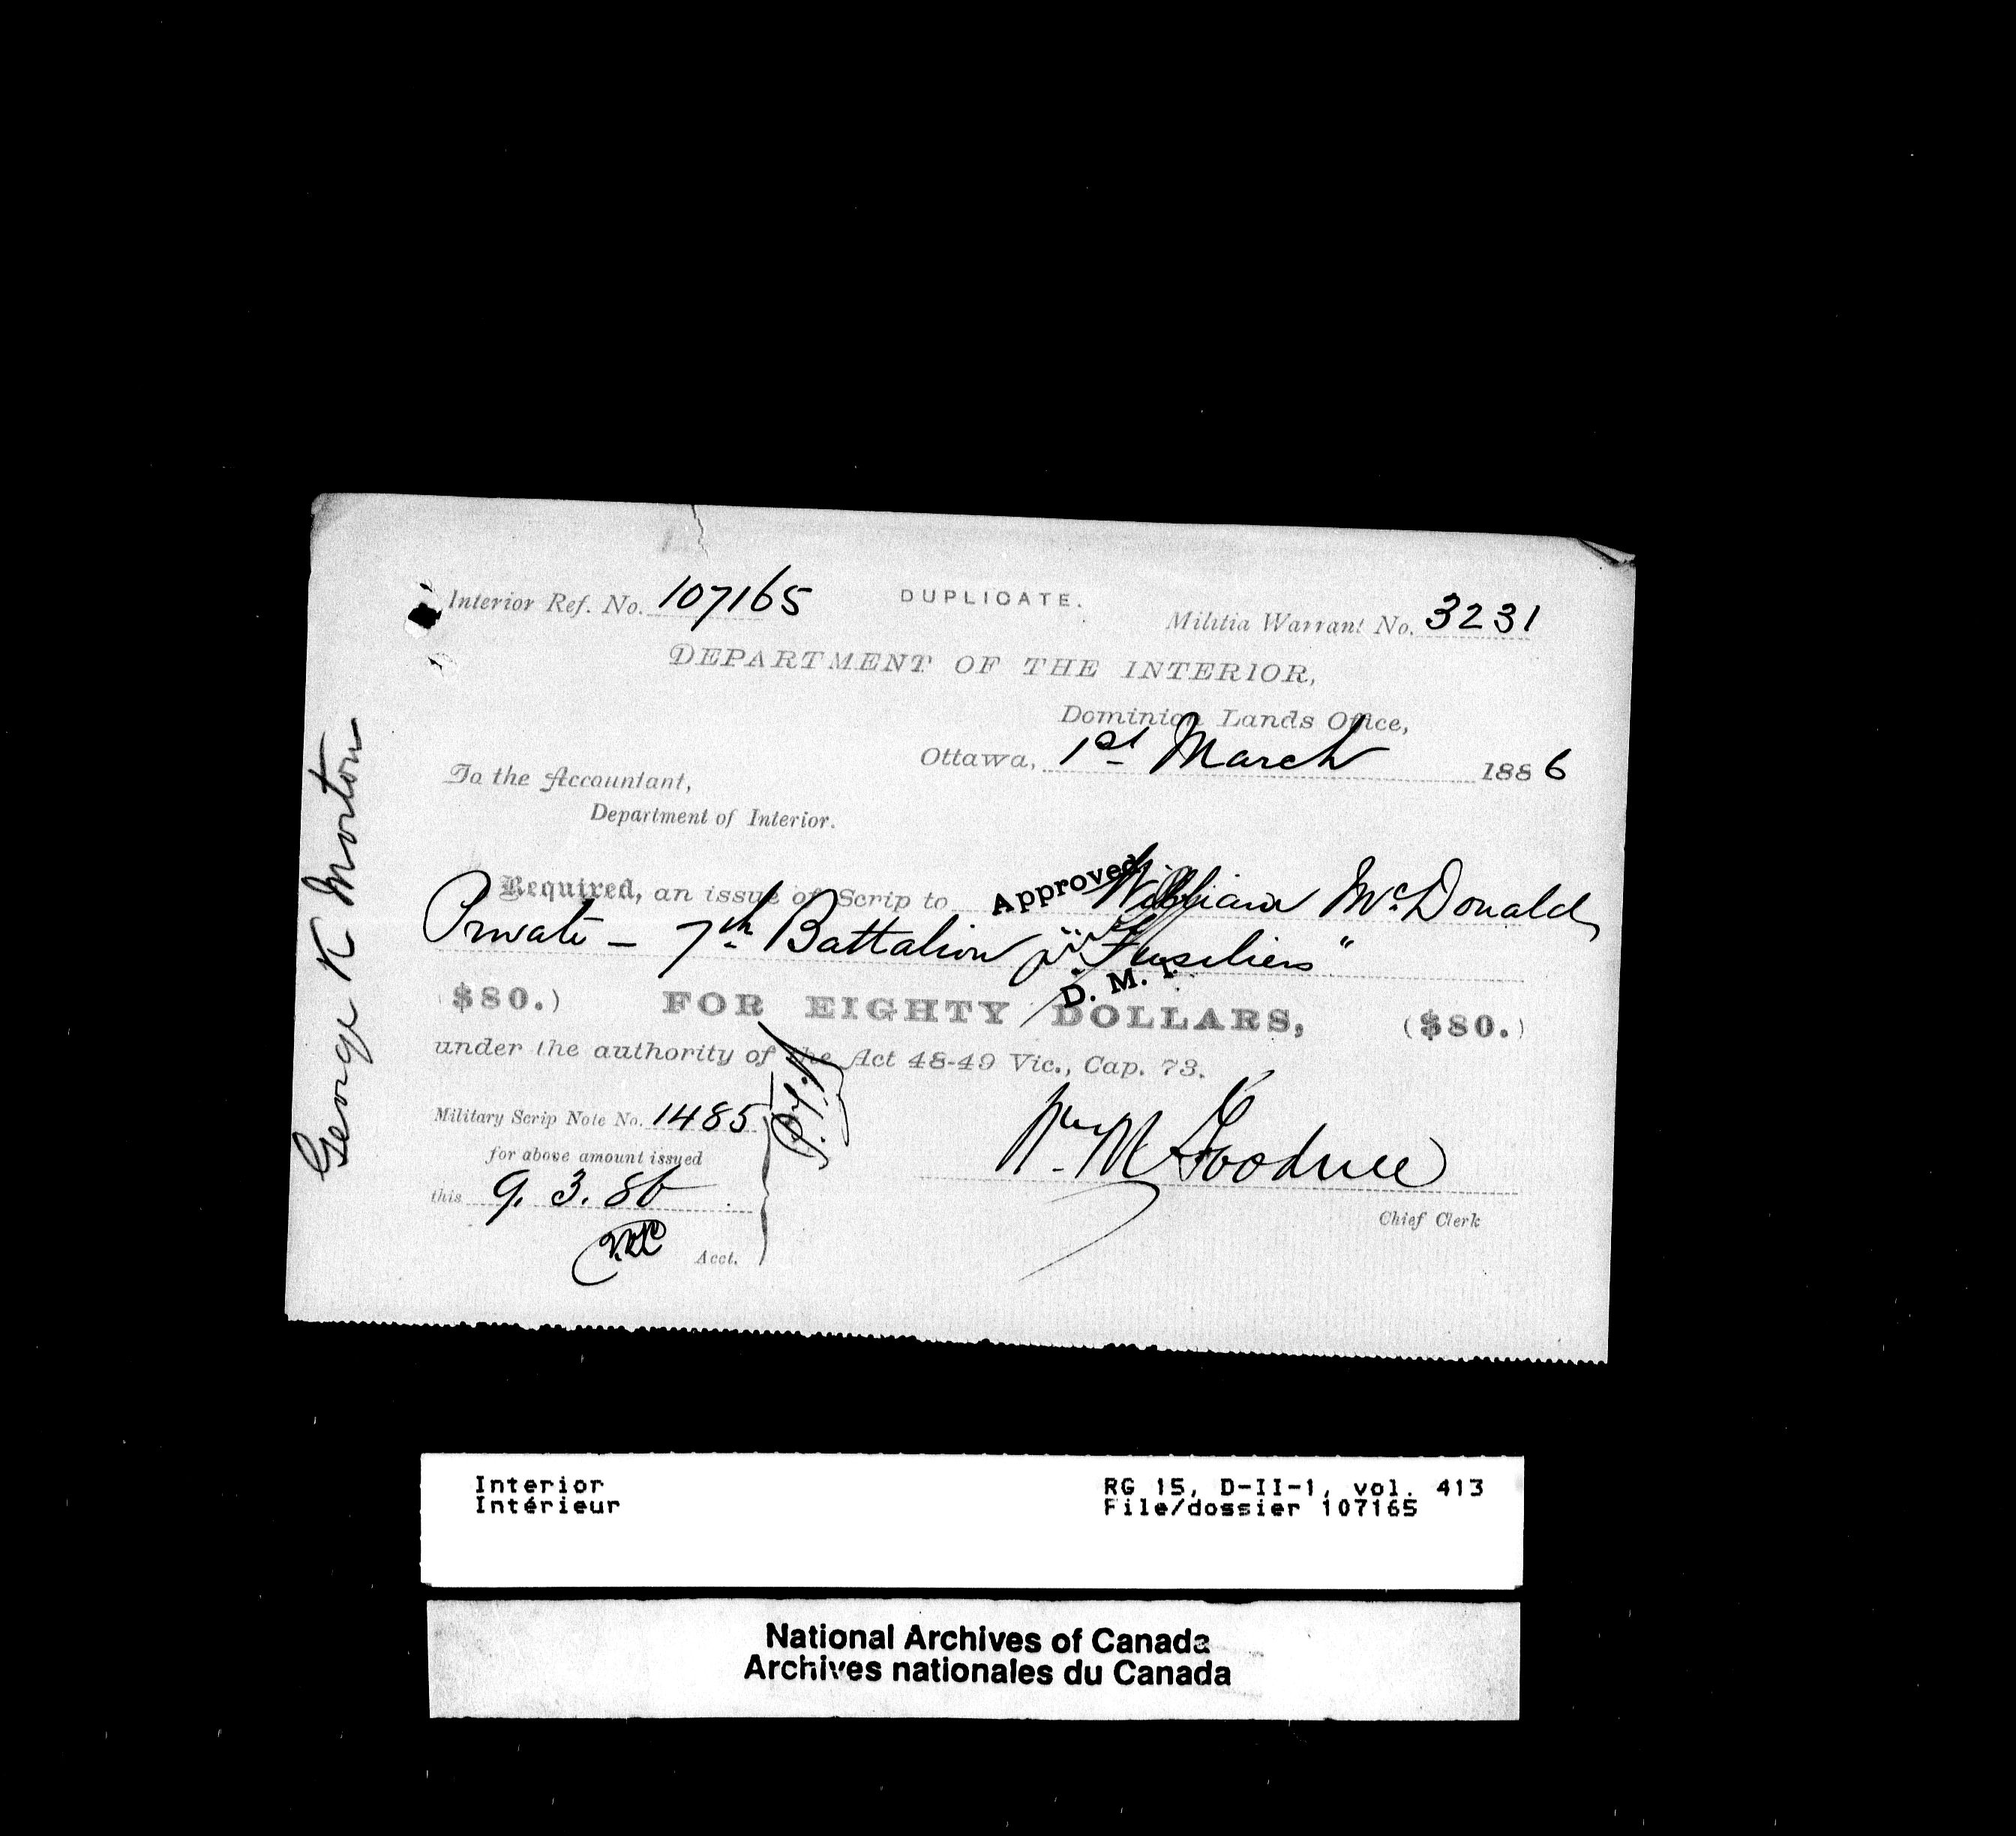 Interior Ref. No. 107165
DUPLICATE.
Militia Warrant No. 3231
DEPARTMENT OF THE INTERIOR,
Dominion Lands Office,
Ottawa, 1st March 1886
To the Accountant,
Department of Interior.
Required, an issue of Scrip to William McDonald
Approved
Private - 7th Battalion "Fusiliers"
D. M. I.
($80.) FOR EIGHTY DOLLARS, ($80.)
under the authority of the Act 48-49 Vic., Cap. 73.
Military Scrip Note No. 1485
for above amount issued
this 9. 3. 86
Acct.
Chief Clerk
George K Morton
Interior
Intérieur
RG 15, D-II-1, vol. 413
File/dossier 107165
National Archives of Canada
Archives nationales du Canada